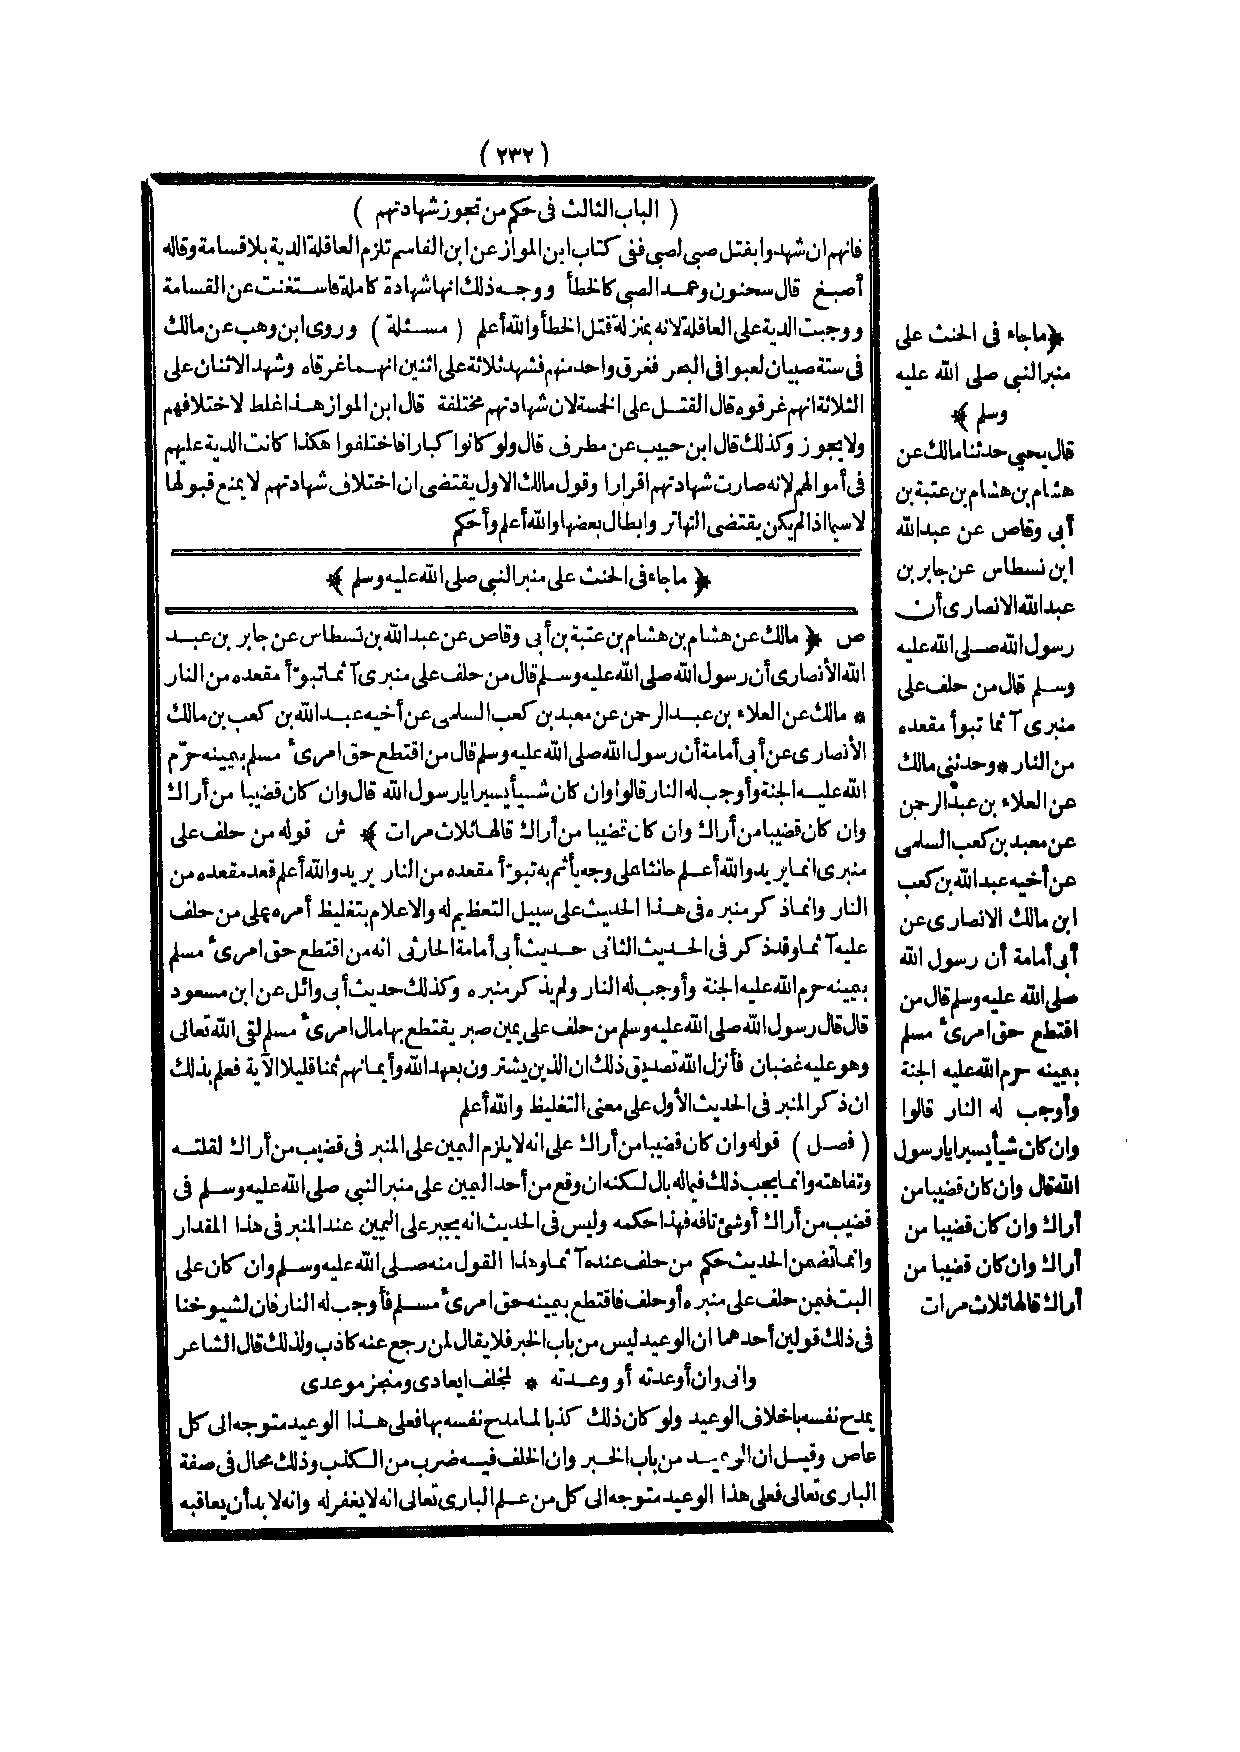 ( ٢٣٢ )
( الباب الثالث فى حكم من تجوز شهادتهم )
فانهم ان شهدوا بقتل صبى لصبى ففى كتاب ابن المواز عن ابن القاسم تلزم العاقلة الدية بلا قسامة وقاله
أصبغ قال سحنون وعمد الصبى كالخطأ ووجه ذلك انها شهادة كاملة فاستغنت عن القسامة
ووجبت الدية على العاقلة لانه بمنزلة قتل الخطأ والله أعلم ( مسئلة ) وروى ابن وهب عن مالك
فى ستة صبيان لعبوا فى البحر فغرق واحد منهم فشهد ثلاثة على اثنين انهما غرقاه وشهد الاثنان على
الثلاثة انهم غرقوه قال القتل على الخمسة لان شهادتهم مختلفة قال ابن المواز هذا غلط لاختلافهم
ولا يجوز وكذلك قال ابن حبيب عن مطرف قال ولو كانوا كبارا فاختلفوا هكذا كانت الدية عليهم
فى أموالهم لانه صارت شهادتهم اقرارا وقول مالك الاول يقتضى ان اختلاف شهادتهم لا يمنع قبولها
لا سيما اذا لم يكن يقتضى التهاتر وابطال بعضها والله أعلم وأحكم
﴿ ماجاء فى الحنث على منبر النبى صلى الله عليه وسلم ﴾
ص ﴿ مالك عن هشام بن هشام بن عتبة بن أبى وقاص عن عبد الله بن نسطاس عن جابر بن عبد
الله الأنصارى أن رسول الله صلى الله عليه وسلم قال من حلف على منبرى آثما تبوّأ مقعده من النار
* مالك عن العلاء بن عبد الرحمن عن معبد بن كعب السلمى عن أخيه عبد الله بن كعب بن مالك
الأنصارى عن أبى أمامة أن رسول الله صلى الله عليه وسلم قال من اقتطع حق امرئ مسلم بيمينه حرّم
الله عليه الجنة وأوجب له النار قالوا وان كان شيأ يسيرا يارسول الله قال وان كان قضيبا من أراك
وان كان قضيبا من أراك وان كان قضيبا من أراك قالها ثلاث مرات ﴾ ش قوله من حلف على
منبرى انما يريد والله أعلم حانثا على وجه يأثم به تبوّأ مقعده من النار يريد والله أعلم قعد مقعده من
النار وانما ذكر منبره فى هذا الحديث على سبيل التعظيم له والاعلام بتغليظ أمره على من حلف
عليه آثما وقد ذكر فى الحديث الثانى حديث أبى أمامة الحارثى انه من اقتطع حق امرئ مسلم
بيمينه حرم الله عليه الجنة وأوجب له النار ولم يذكر منبره وكذلك حديث أبى وائل عن ابن مسعود
قال قال رسول الله صلى الله عليه وسلم من حلف على يمين صبر يقتطع بها مال امرئ مسلم لقى الله تعالى
وهو عليه غضبان فأنزل الله تصديق ذلك ان الذين يشترون بعهد الله وأيمانهم ثمنا قليلا الآية فعلم بذلك
ان ذكر المنبر فى الحديث الأول على معنى التغليظ والله أعلم
( فصل ) قوله وان كان قضيبا من أراك على انه لا يلزم اليمين على المنبر فى قضيب من أراك لقلته
وتفاهته وانما يجب ذلك فيما له بال لكنه ان وقع من أحد اليمين على منبر النبى صلى الله عليه وسلم فى
قضيب من أراك أو شئ تافه فهذا حكمه وليس فى الحديث انه يجبر على اليمين عند المنبر فى هذا المقدار
وانما تضمن الحديث حكم من حلف عنده آثما وهذا القول منه صلى الله عليه وسلم وان كان على
البت فيمن حلف على منبره أو حلف فاقتطع بيمينه حق امرئ مسلم فأوجب له النار فان لشيوخنا
فى ذلك قولين أحدهما ان الوعيد ليس من باب الخبر فلا يقال لمن رجع عنه كاذب ولذلك قال الشاعر
وانى وان أوعدته أو وعدته * لمخلف ايعادى ومنجز موعدى
يمدح نفسه باخلاف الوعيد ولو كان ذلك كذبا لما مدح نفسه بها فعلى هذا الوعيد متوجه الى كل
عاص وقيل ان الوعيد من باب الخبر وان الخلف فيه ضرب من الكذب وذلك محال فى صفة
البارى تعالى فعلى هذا الوعيد متوجه الى كل من علم البارى تعالى انه لا يغفر له وانه لا بد أن يعاقبه
﴿ ماجاء فى الحنث على
منبر النبى صلى الله عليه
وسلم ﴾
قال يحيى حدثنا مالك عن
هشام بن هشام بن عتبة بن
أبى وقاص عن عبد الله
ابن نسطاس عن جابر بن
عبد الله الانصارى أن
رسول الله صلى الله عليه
وسلم قال من حلف على
منبرى آثما تبوأ مقعده
من النار * وحدثنى مالك
عن العلاء بن عبد الرحمن
عن معبد بن كعب السلمى
عن أخيه عبد الله بن كعب
ابن مالك الانصارى عن
أبى أمامة أن رسول الله
صلى الله عليه وسلم قال من
اقتطع حق امرئ مسلم
بيمينه حرم الله عليه الجنة
وأوجب له النار قالوا
وان كان شيأ يسيرا يارسول
الله قال وان كان قضيبا من
أراك وان كان قضيبا من
أراك وان كان قضيبا من
أراك قالها ثلاث مرات